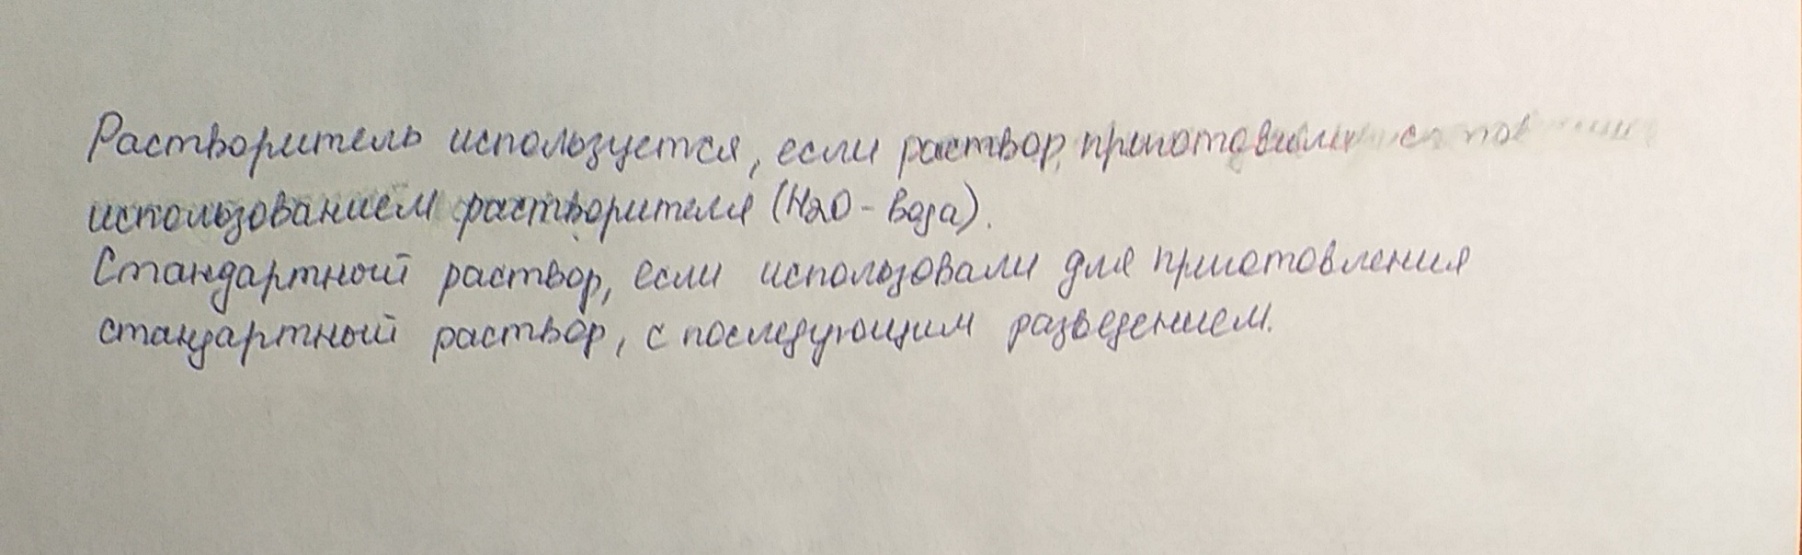 Растворитель используется, если раствор приготовили с
использованием растворителя (H2O - вода).
Стандартный раствор, если использовали для приготовления
стандартный раствор, с последующим разведением.